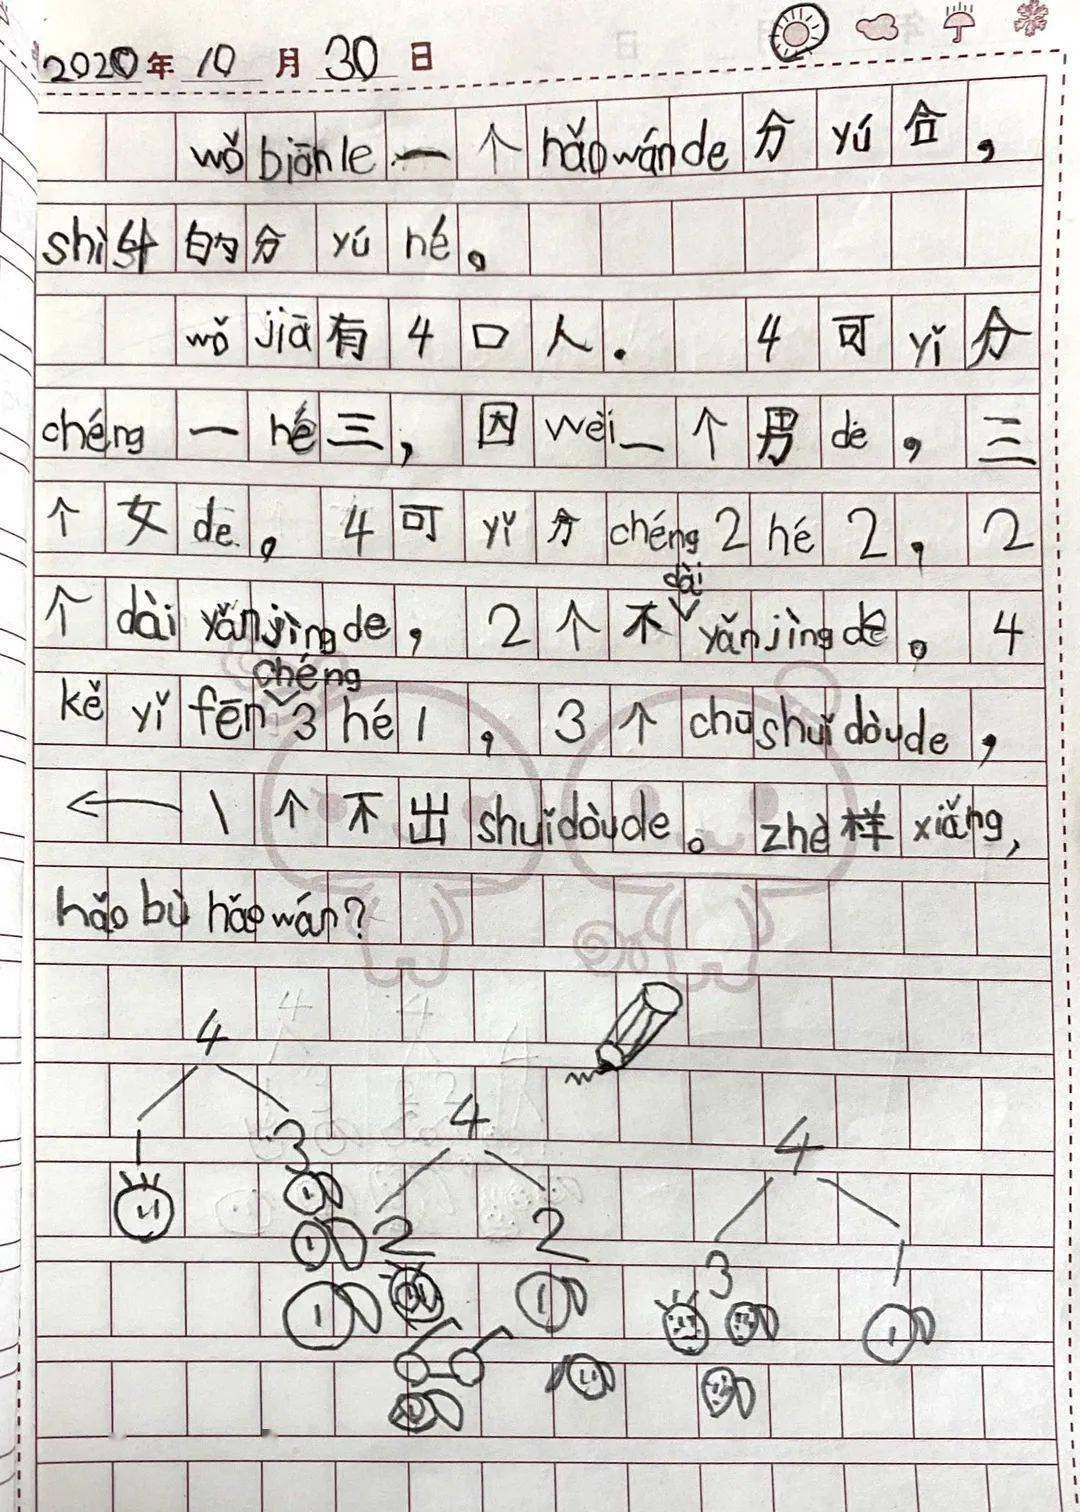 2020年10月30日
wǒ biān le 一个 hǎo wán de 分 yú 合，
shì 4 的分 yú hé。
wǒ jiā 有 4 口人. 4 可 yǐ 分
chéng 一 hé 三，因 wèi 一个男 de，三
个女 de。4 可 yǐ 分 chéng 2 hé 2，2
个 dài yǎn jìng de，2 个不 dài yǎn jìng de。4
kě yǐ fēn chéng 3 hé 1，3 个 chū shuǐ dòu de，
1 个不出 shuǐ dòu de。zhè 样 xiǎng,
hǎo bù hǎo wán?
4
1 3
4
2 2
4
3 1